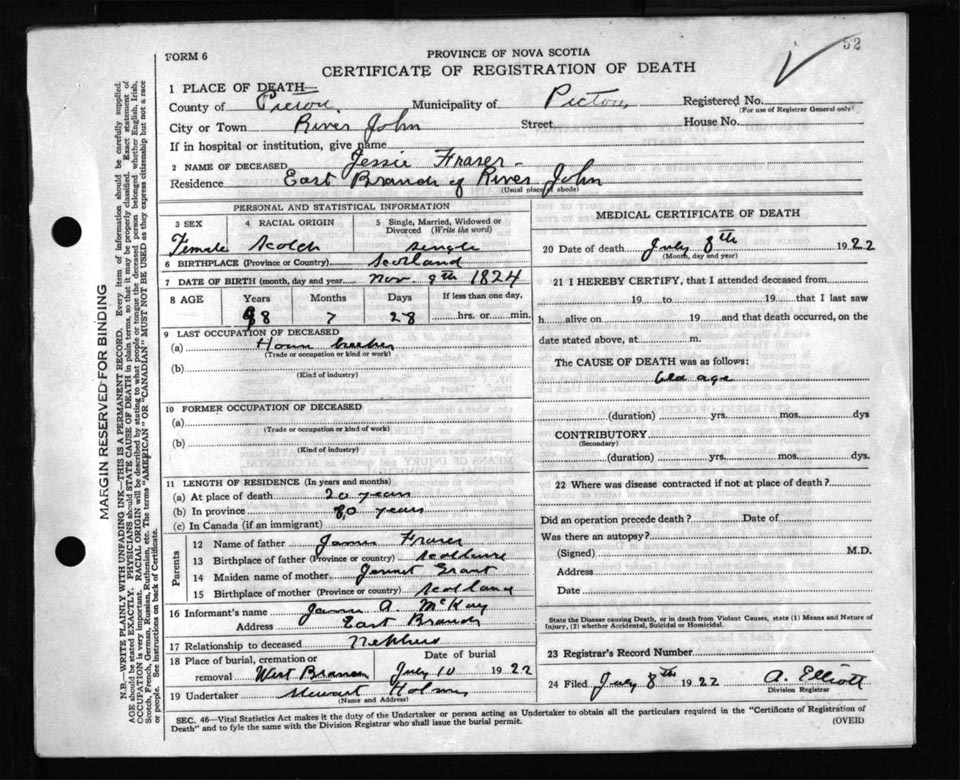 52
FORM 6
PROVINCE OF NOVA SCOTIA
CERTIFICATE OF REGISTRATION OF DEATH
1 PLACE OF DEATH
County of Pictou Municipality of Pictou Registered No.
(For use of Registrar General only)
City or Town River John Street House No.
If in hospital or institution, give name
2 NAME OF DECEASED Jessie Fraser
Residence East Branch of River John
(Usual place of abode)
PERSONAL AND STATISTICAL INFORMATION
3 SEX 4 RACIAL ORIGIN 5 Single, Married, Widowed or Divorced (Write the word)
Female Scotch Single
6 BIRTHPLACE (Province or Country) Scotland
7 DATE OF BIRTH (month, day and year) Nov. 9th 1824
8 AGE Years Months Days If less than one day,
98 7 28 hrs. or min.
9 LAST OCCUPATION OF DECEASED
(a)
(Trade or occupation or kind or work)
(b)
(Kind of industry)
10 FORMER OCCUPATION OF DECEASED
(a)
(Trade or occupation or kind of work)
(b)
(Kind of industry)
11 LENGTH OF RESIDENCE (In years and months)
(a) At place of death 20 years
(b) In province 80 years
(c) In Canada (if an immigrant)
Parents
12 Name of father James Fraser
13 Birthplace of father (Province or country)
14 Maiden name of mother Jennet Grant
15 Birthplace of mother (Province or country) Scotland
16 Informant's name James A. McKay
Address East Branch
17 Relationship to deceased Nephew
18 Place of burial, cremation or removal Date of burial
West Branch July 10 1922
19 Undertaker Stewart Holmes
(Name and Address)
MEDICAL CERTIFICATE OF DEATH
20 Date of death July 8th 1922
(Month, day and year)
21 I HEREBY CERTIFY, that I attended deceased from
19 to 19 that I last saw
h alive on 19 and that death occurred, on the
date stated above, at m.
The CAUSE OF DEATH was as follows:
Old age
(duration) yrs. mos. dys
CONTRIBUTORY
(Secondary)
(duration) yrs. mos. dys.
22 Where was disease contracted if not at place of death?
Did an operation precede death? Date of
Was there an autopsy?
(Signed) M.D.
Address
Date
State the Disease causing Death, or in death from Violent Causes, state (1) Means and Nature of Injury, (2) whether Accidental, Suicidal or Homicidal.
23 Registrar's Record Number
24 Filed July 8th 1922 A. Elliott
Division Registrar
SEC. 46—Vital Statistics Act makes it the duty of the Undertaker or person acting as Undertaker to obtain all the particulars required in the "Certificate of Registration of
Death" and to fyle the same with the Division Registrar who shall issue the burial permit.
(OVER)
MARGIN RESERVED FOR BINDING
N.B.—WRITE PLAINLY WITH UNFADING INK—THIS IS A PERMANENT RECORD. Every item of information should be carefully supplied.
AGE should be stated EXACTLY. PHYSICIANS should STATE CAUSE OF DEATH in plain terms, so that it may be properly classified. Exact statement of
OCCUPATION is very important. RACIAL ORIGIN will be described by stating to what people or tongue the deceased person belonged whether English, Irish,
Scotch, French, German, Russian, Ruthenian, etc. The terms "AMERICAN" OR "CANADIAN" MUST NOT BE USED as they express citizenship but not a race
or people. See instructions on back of Certificate.